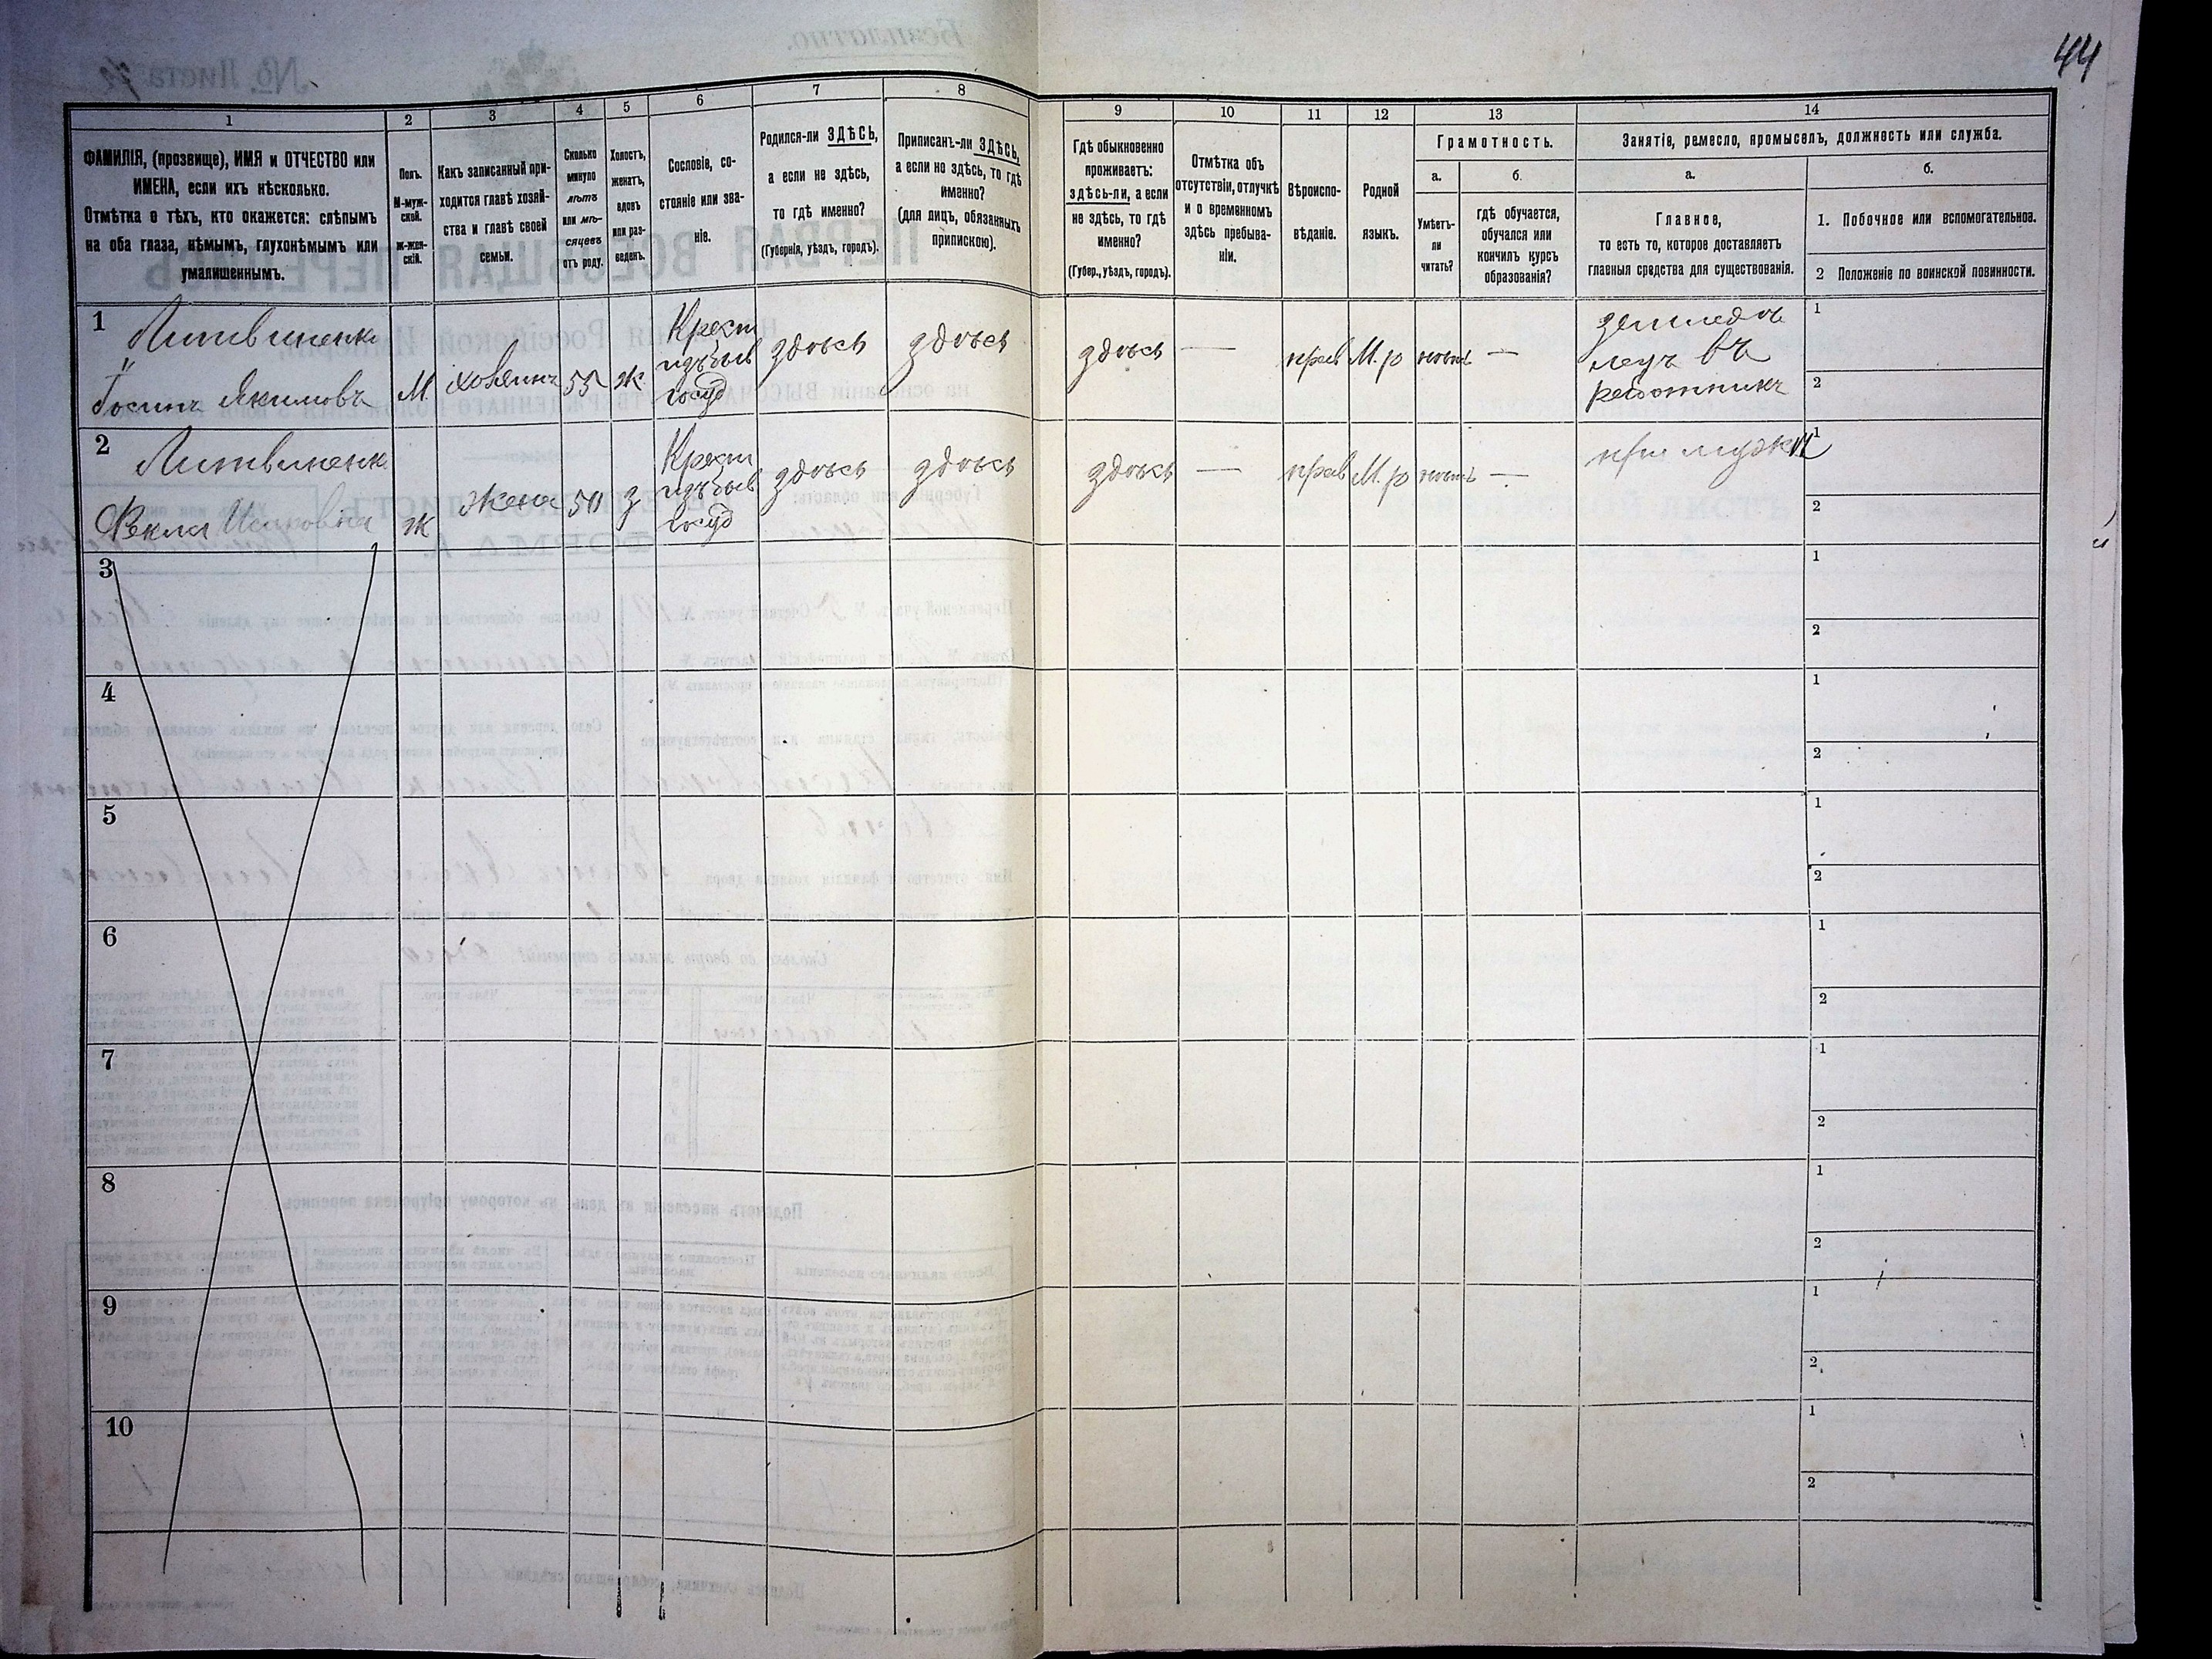 44
1 2 3 4 5 6 7 8 9 10 11 12 13 14
ФАМИЛІЯ, (прозвище), ИМЯ и ОТЧЕСТВО или
ИМЕНА, если ихъ нѣсколько.
Отмѣтка о тѣхъ, кто окажется: слѣпымъ
на оба глаза, нѣмымъ, глухонѣмымъ или
умалишеннымъ.
Полъ.
М-муж-
ской.
ж-жен-
скій.
Какъ записанный при-
ходится главѣ хозяй-
ства и главѣ своей
семьи.
Сколько
минуло
лѣтъ
или мѣ-
сяцевъ
отъ роду.
Холостъ,
женатъ,
вдовъ
или раз-
веденъ.
Сословіе, со-
стояніе или зва-
ніе.
Родился-ли ЗДѢСЬ,
а если не здѣсь,
то гдѣ именно?
(Губернія, уѣздъ, городъ).
Приписанъ-ли ЗДѢСЬ,
а если не здѣсь, то гдѣ
именно?
(для лицъ, обязанныхъ
припискою).
Гдѣ обыкновенно
проживаетъ:
здѣсь-ли, а если
не здѣсь, то гдѣ
именно?
(Губер., уѣздъ, городъ).
Отмѣтка объ
отсутствіи, отлучкѣ
и о временномъ
здѣсь пребыва-
ніи.
Вѣроиспо-
вѣданіе.
Родной
языкъ.
Грамотность.
а.
Умѣетъ-
ли
читать?
б.
гдѣ обучается,
обучался или
кончилъ курсъ
образованія?
Занятіе, ремесло, промыселъ, должность или служба.
а.
Главное,
то есть то, которое доставляетъ
главныя средства для существованія.
б.
1. Побочное или вспомогательное.
2 Положеніе по воинской повинности.
1
Литвиненко
Якимовъ
М
хозяинъ
55
ж
Крест
изъ быв
госуд
здѣсь
здѣсь
здѣсь
—
прав
М. р
нѣтъ
—
земледѣ
въ
работникъ
1
2
2
Литвиненк
Фекла
ж
жена
50
з
Крест
изъ быв
госуд
здѣсь
здѣсь
здѣсь
—
прав
М. р
нѣтъ
—
при мужѣ
1
2
3
1
2
4
1
2
5
1
2
6
1
2
7
1
2
8
1
2
9
1
2
10
1
2